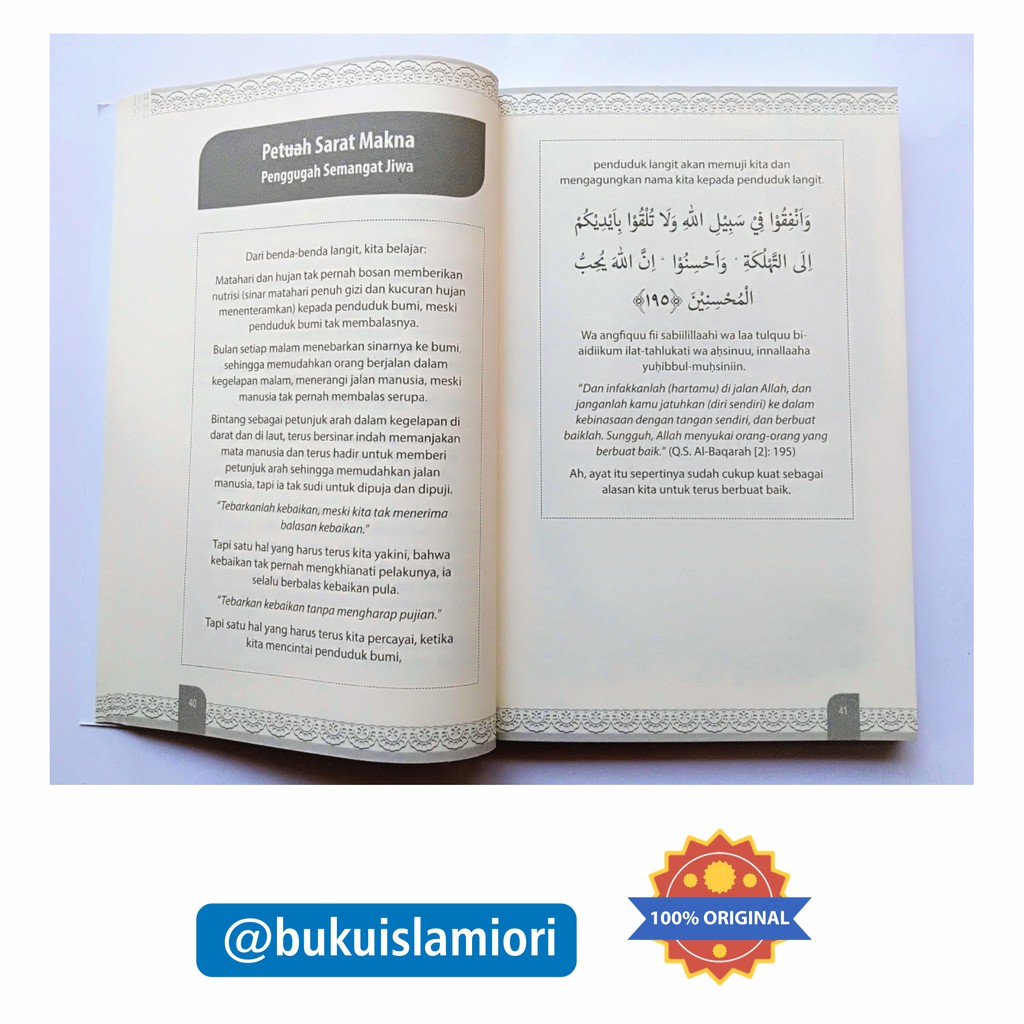 Petuah Sarat Makna
Penggugah Semangat Jiwa
Dari benda-benda langit, kita belajar:
Matahari dan hujan tak pernah bosan memberikan
nutrisi (sinar matahari penuh gizi dan kucuran hujan
menenteramkan) kepada penduduk bumi, meski
penduduk bumi tak membalasnya.
Bulan setiap malam menebarkan sinarnya ke bumi,
sehingga memudahkan orang berjalan dalam
kegelapan malam, menerangi jalan manusia, meski
manusia tak pernah membalas serupa.
Bintang sebagai petunjuk arah dalam kegelapan di
darat dan di laut, terus bersinar indah memanjakan
mata manusia dan terus hadir untuk memberi
petunjuk arah sehingga memudahkan jalan
manusia, tapi ia tak sudi untuk dipuja dan dipuji.
"Tebarkanlah kebaikan, meski kita tak menerima
balasan kebaikan."
Tapi satu hal yang harus terus kita yakini, bahwa
kebaikan tak pernah mengkhianati pelakunya, ia
selalu berbalas kebaikan pula.
"Tebarkan kebaikan tanpa mengharap pujian."
Tapi satu hal yang harus terus kita percayai, ketika
kita mencintai penduduk bumi,
40
penduduk langit akan memuji kita dan
mengagungkan nama kita kepada penduduk langit.
وَاَنْفِقُوْا فِيْ سَبِيْلِ اللّٰهِ وَلَا تُلْقُوْا بِاَيْدِيْكُمْ
اِلَى التَّهْلُكَةِ ۛ وَاَحْسِنُوْا ۛ اِنَّ اللّٰهَ يُحِبُّ
الْمُحْسِنِيْنَ ﴿١٩٥﴾
Wa angfiquu fii sabiilillaahi wa laa tulquu bi-
aidiikum ilat-tahlukati wa aḥsinuu, innallaaha
yuḥibbul-muḥsiniin.
"Dan infakkanlah (hartamu) di jalan Allah, dan
janganlah kamu jatuhkan (diri sendiri) ke dalam
kebinasaan dengan tangan sendiri, dan berbuat
baiklah. Sungguh, Allah menyukai orang-orang yang
berbuat baik." (Q.S. Al-Baqarah [2]: 195)
Ah, ayat itu sepertinya sudah cukup kuat sebagai
alasan kita untuk terus berbuat baik.
41
@bukuislamiori
100% ORIGINAL